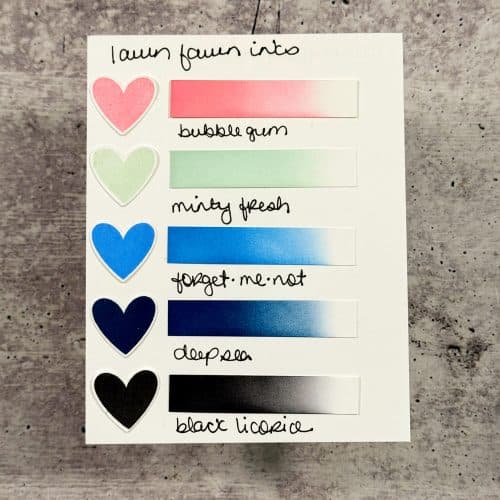 lawn fawn inks
bubblegum
minty fresh
forget·me·not
deep sea
black licorice